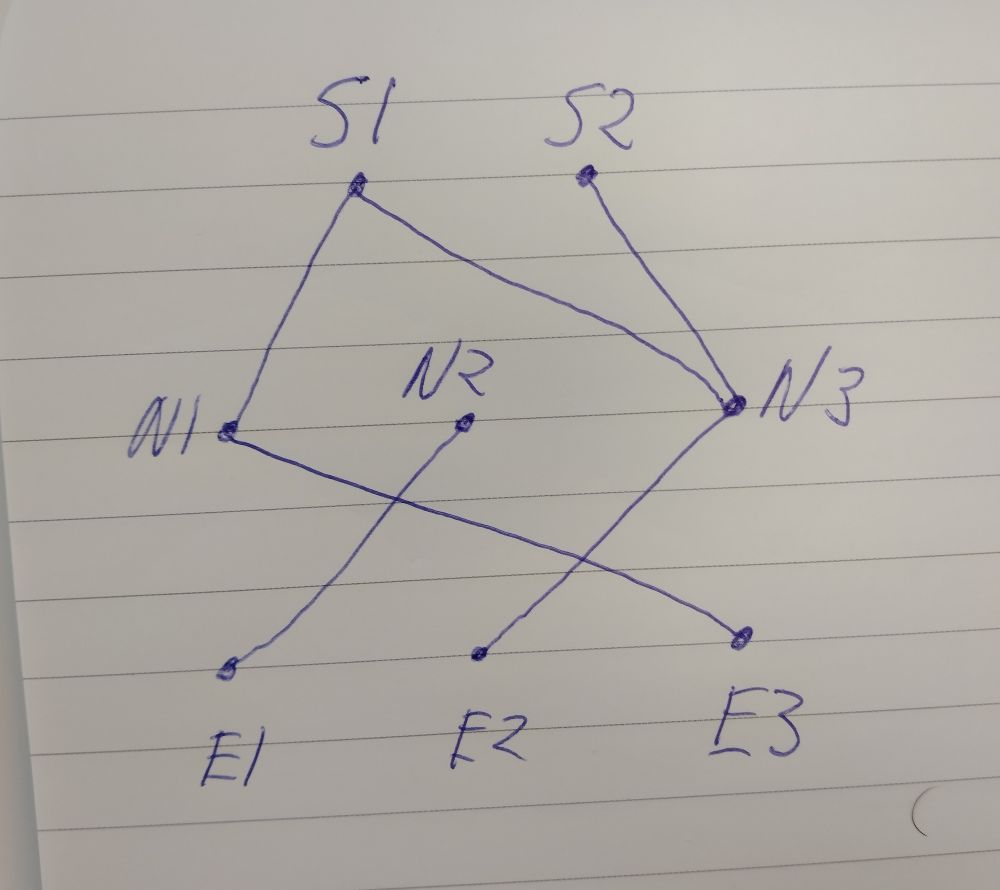 S1 S2
N1 N2 N3
E1 E2 E3